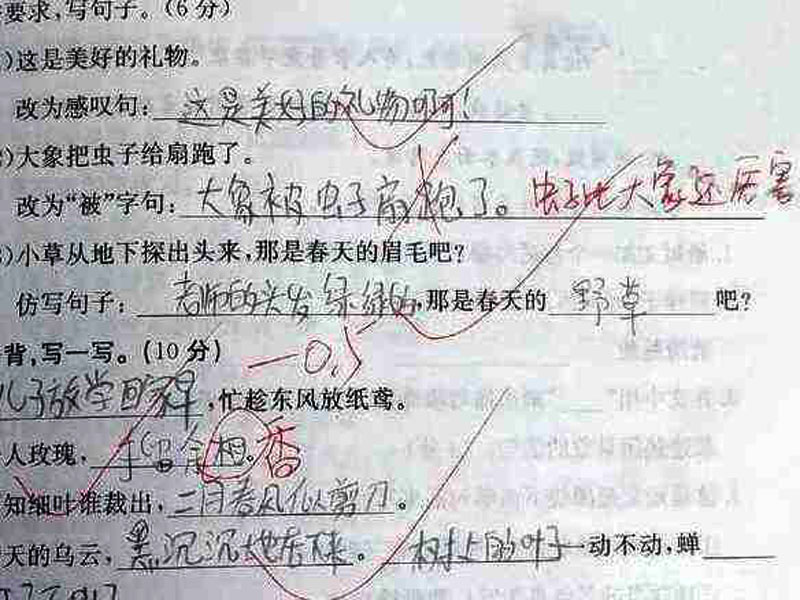 要求,写句子。(6分)
)这是美好的礼物。
改为感叹句:这是美好的礼物啊!
)大象把虫子给扇跑了。
改为“被”字句:大象被虫子扇跑了。虫子比大象还厉害
)小草从地下探出头来,那是春天的眉毛吧?
仿写句子:老师的头发绿绿的,那是春天的野草吧?
背,写一写。(10分)
-0.5
儿子放学回家早,忙趁东风放纸鸢。
人玫瑰,手留余相。香
知细叶谁裁出,二月春风似剪刀。
天的乌云,黑沉沉地压下来。树上的叶子一动不动,蝉